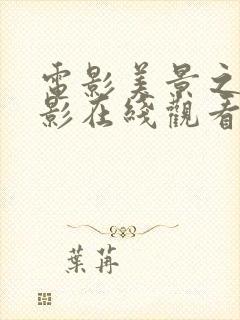 電影美景之
影在綫觀看
葉苒